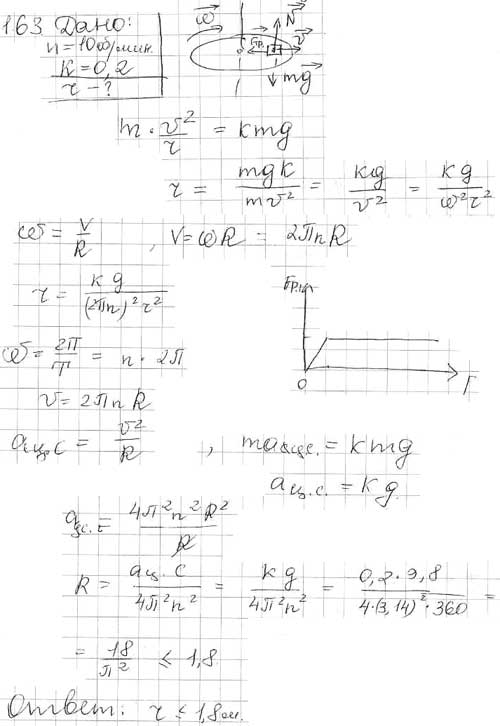 163 Дано:
n = 10 об/мин.
K = 0,2
r - ?
ω N Fтр. v mg
m · v²/r = kmg
r = mgk/mv² = kg/v² = kg/ω²r²
ω = V/R , V = ωR = 2ПnR
r = kg/(2Пn)²r²
Fтр.
ω = 2П/T = n · 2П
0 F
v = 2ПnR
aц.с = v²/R , maц.с. = kmg
aц.с. = kg
aц.с. = 4П²n²R²/R
R = aц.с/4П²n² = kg/4П²n² = 0,2·9,8/4·(3,14)²·360 =
= 18/П² ≤ 1,8
Ответ: r ≤ 1,8 см.